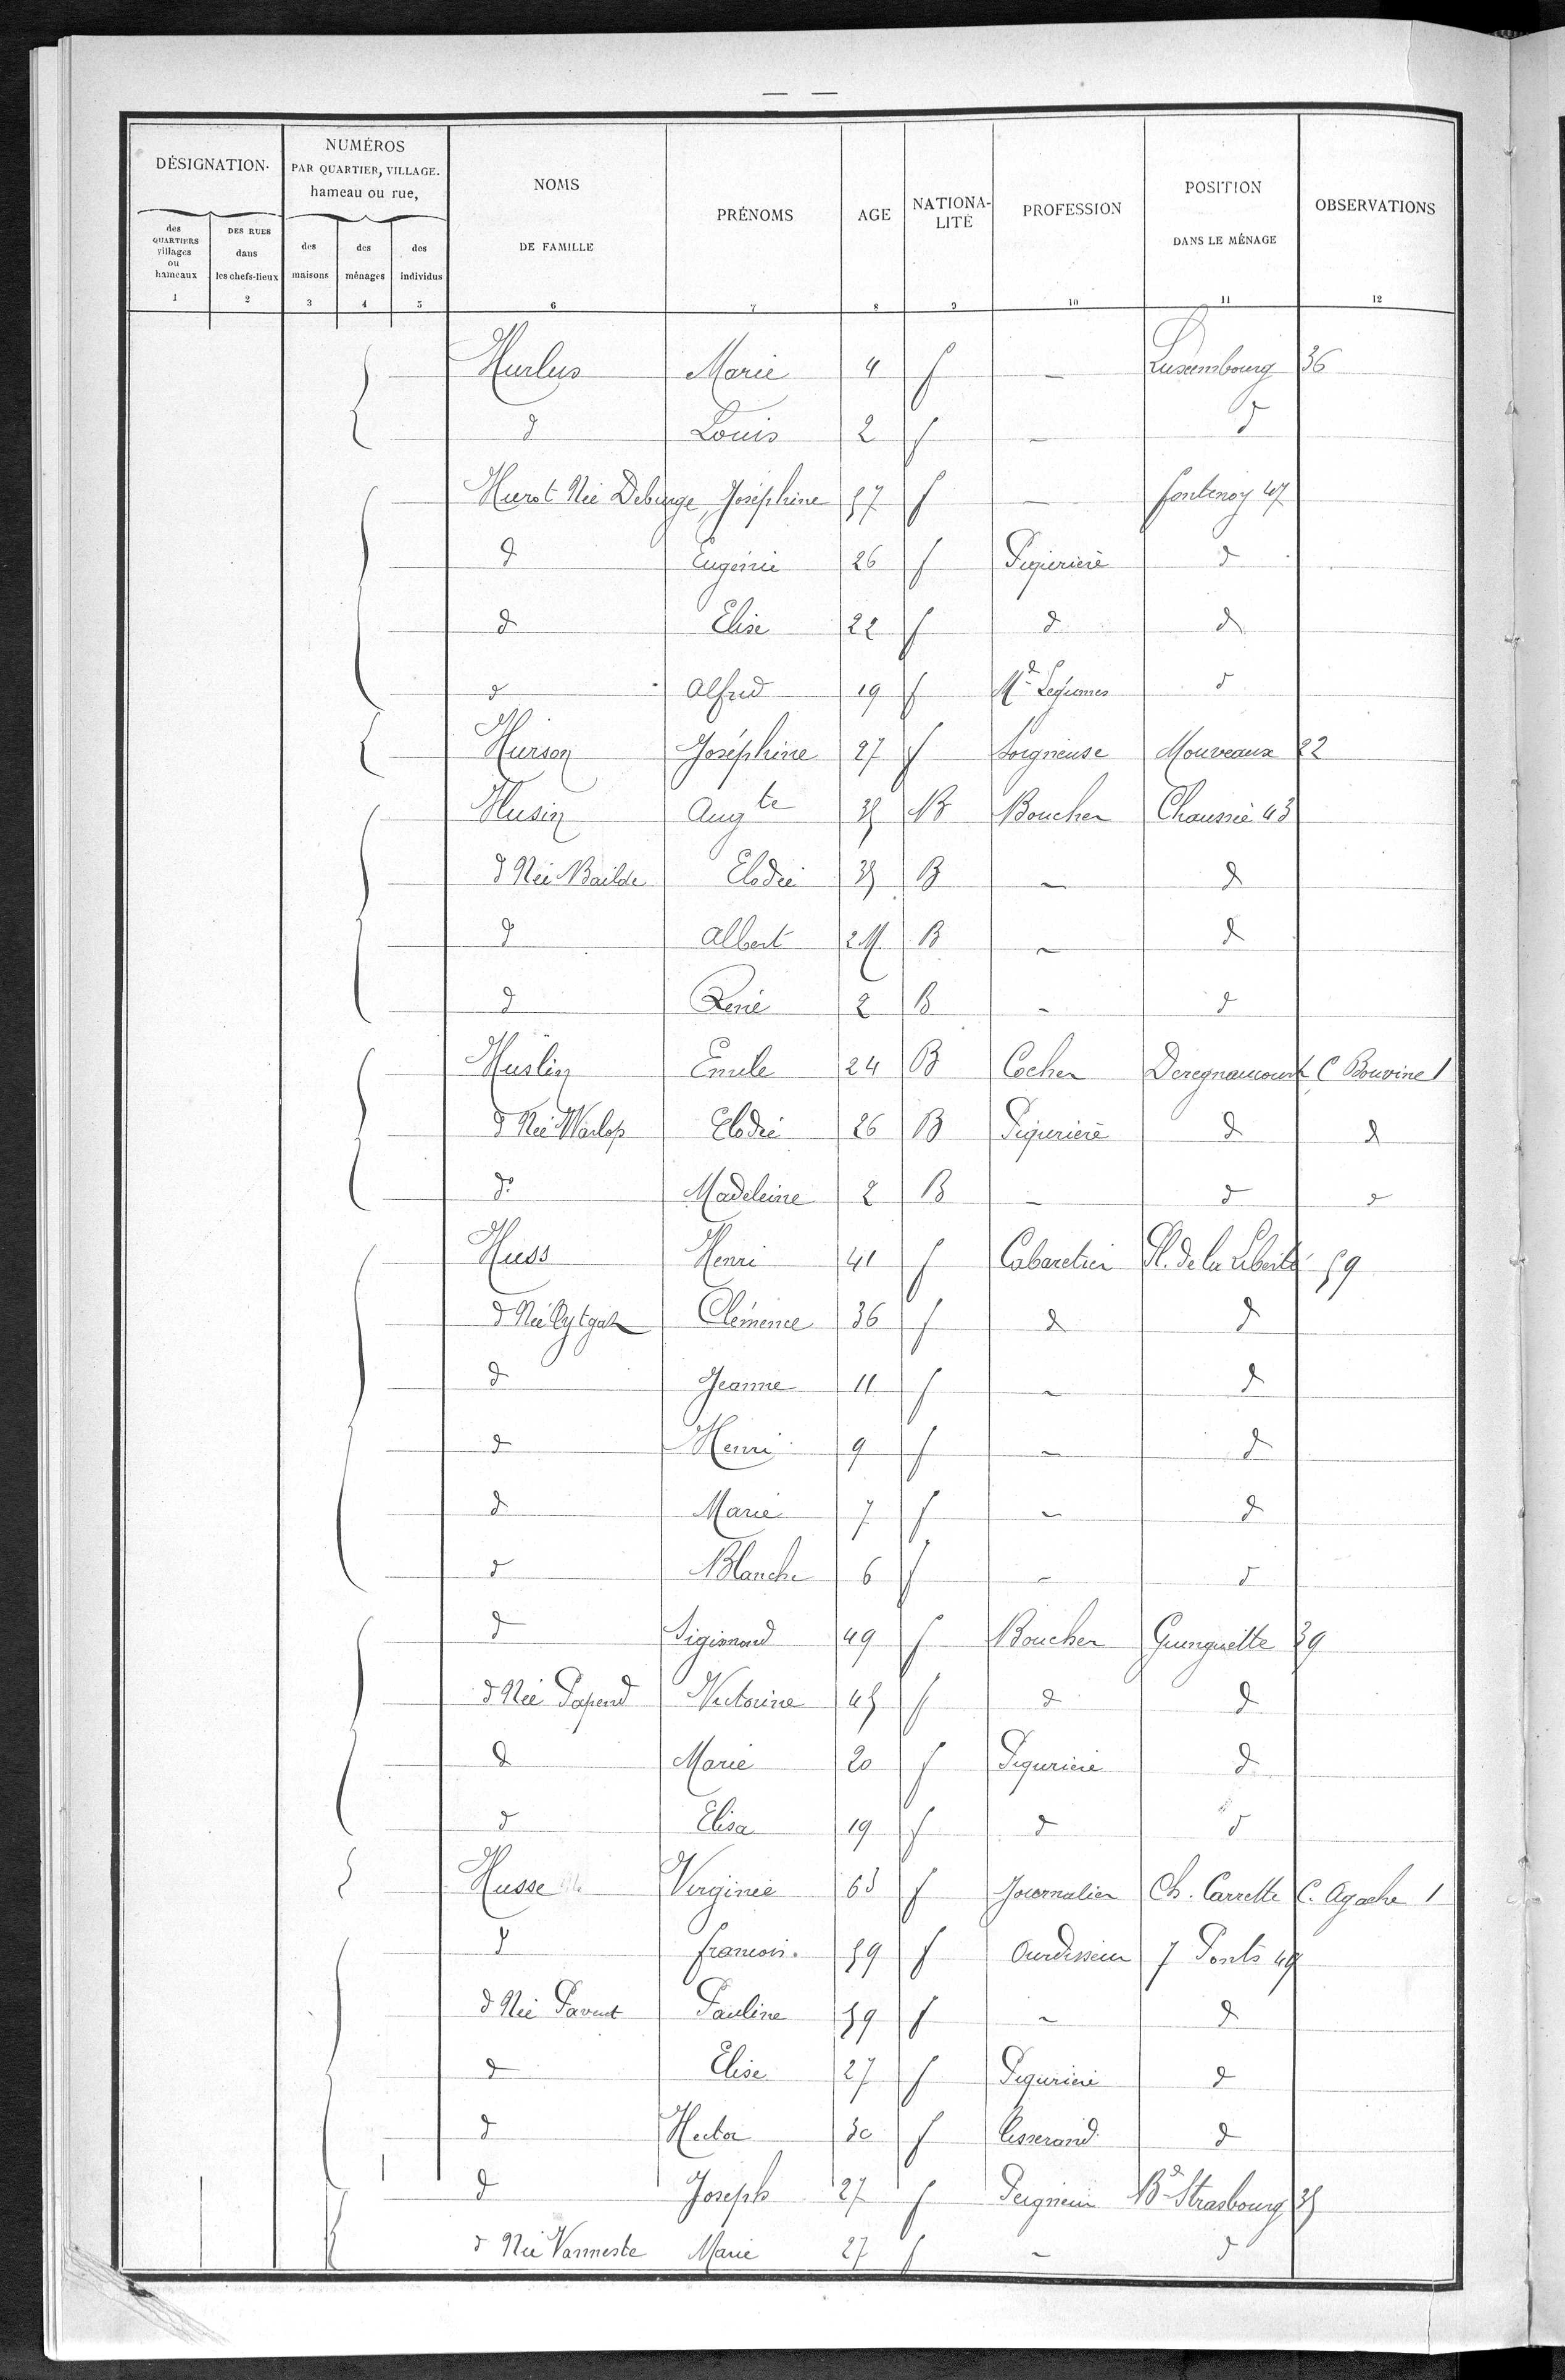 DÉSIGNATION.
NUMÉROS
PAR QUARTIER, VILLAGE.
hameau ou rue,
NOMS
DE FAMILLE
PRÉNOMS
AGE
NATIONA-
LITÉ
PROFESSION
POSITION
DANS LE MÉNAGE
OBSERVATIONS
des
QUARTIERS
villages
ou
hameaux
DES RUES
dans
les chefs-lieux
des
maisons
des
ménages
des
individus
1 2 3 4 5 6 7 8 9 10 11 12
Hurlus Marie 4 f - Luxembourg 36
d Louis 2 f - d
Hurot Née Deburge, Joséphine 57 f - fontenoy 47
d Eugénie 26 f Piqurière d
d Elise 22 f d d
d Alfred 19 f Md Légumes d
Hurson Joséphine 27 f Soigneuse Mouveaux 22
Husin Augte 35 B Boucher Chaussée 43
d Née Bailde Elodie 35 B - d
d Albert B - d
d René 2 B - d
Huslin Emile 24 B Cocher Deregnaucourt C Bouvine 1
d Née Warlop Elodie 26 B Piqurière d d
do Madeleine 2 B - d d
Huss Henri 41 f Cabaretier Pl. de la Liberté 59
d Née Clémence 36 f d d
d Jeanne 11 f - d
d Henri 9 f - d
d Marie 7 f - d
d Blanche 6 f - d
d Sigismond 49 f Boucher Guinguette 39
d Née Victorine 45 f d d
d Marie 20 f Piqurière d
d Elisa 19 f d d
Husse Virginie 63 f Journalier Ch. Carrette C. Agache 1
d francois. 59 f Ourdisseur 7 Ponts 49
d Née Pauline 59 f - d
d Elise 27 f Piqurière d
d Hector 30 f tisserand d
d Joseph 27 f Peigneur Bd Strasbourg 35
d Née Vanneste Marie 27 f - d